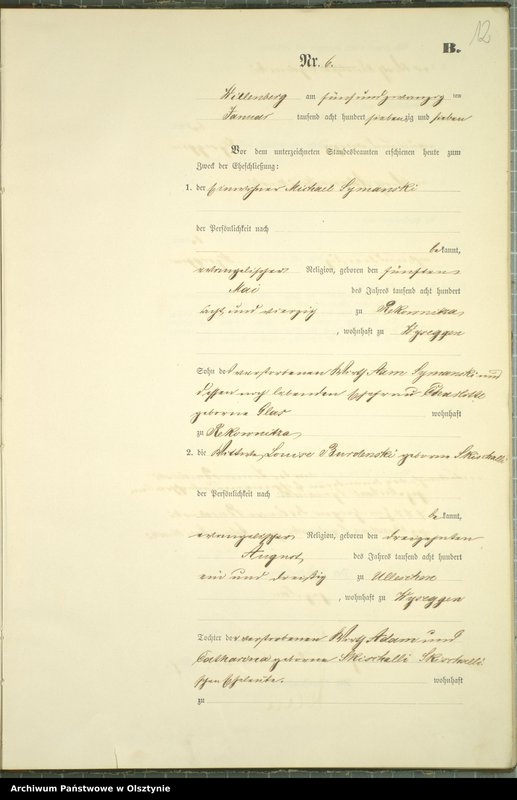 12
B.
Nr. 6.
Willenberg am fünfundzwanzig ten
Januar tausend acht hundert siebenzig und sieben
Vor dem unterzeichneten Standesbeamten erschienen heute zum
Zweck der Eheschließung:
1. der Einwohner Michael Symanski
der Persönlichkeit nach
bekannt,
evangelischer Religion, geboren den fünften
Mai des Jahres tausend acht hundert
acht und vierzig zu Rekownitza
, wohnhaft zu Wyseggen
Sohn des verstorbenen Wirth Adam Symanski und
dessen noch lebenden Ehefrau Charlotte
geborne wohnhaft
zu Rekownitza
2. die Wittwe Louise Burdenski geborne
der Persönlichkeit nach
bekannt,
evangelischer Religion, geboren den dreizehnten
August des Jahres tausend acht hundert
ein und dreißig zu Ulleschen
, wohnhaft zu Wyseggen
Tochter der verstorbenen Wirth Adam und
Catharina geborne
schen Eheleute. wohnhaft
zu
Archiwum Państwowe w Olsztynie